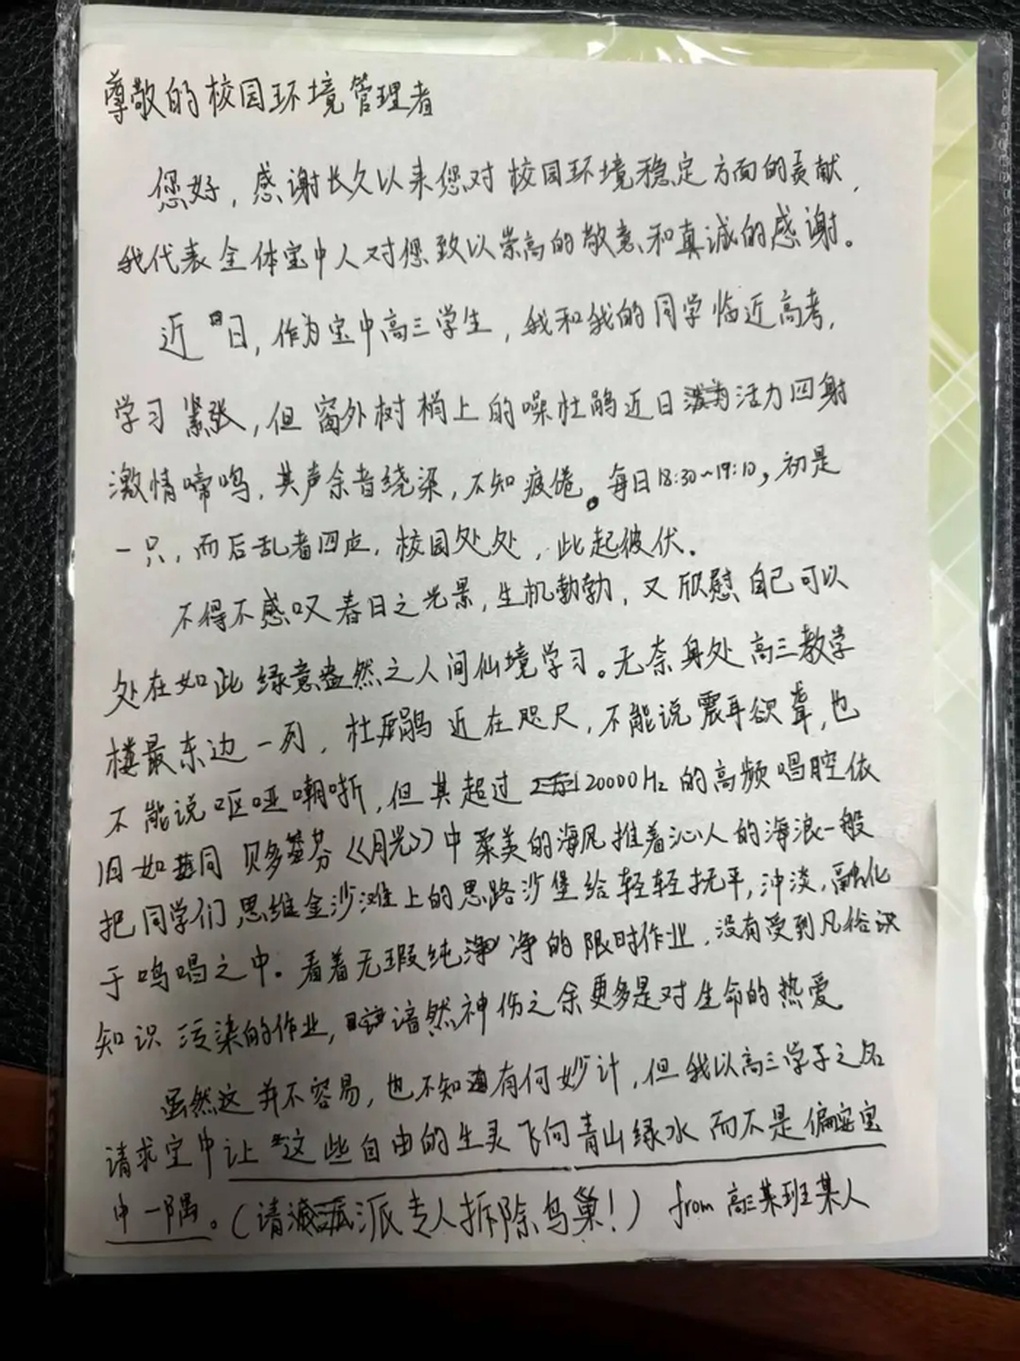 尊敬的校园环境管理者
您好，感谢长久以来您对校园环境稳定方面的贡献，
我代表全体宝中人对您致以崇高的敬意和真诚的感谢。
近日，作为宝中高三学生，我和我的同学临近高考，
学习紧张，但窗外树梢上的噪杜鹃近日活力四射
激情啼鸣，其声余音绕梁，不知疲倦。每日18:30~19:10，初是
一只，而后乱者四应，校园处处，此起彼伏。
不得不感叹春日之光景，生机勃勃，又欣慰自己可以
处在如此绿意盎然之人间仙境学习。无奈身处高三教学
楼最东边一列，杜鹃近在咫尺，不能说震耳欲聋，也
不能说呕哑嘲哳，但其超过20000Hz的高频唱腔依
旧如同贝多芬《月光》中柔美的海风推着沁人的海浪一般
把同学们思维金沙滩上的思路沙堡给轻轻抚平，冲淡，融化
于鸣唱之中。看着无瑕纯净的限时作业，没有受到凡俗
知识污染的作业，谙然神伤之余更多是对生命的热爱。
虽然这并不容易，也不知有何妙计，但我以高三学子之名
请求宝中让这些自由的生灵飞向青山绿水而不是偏安宝
中一隅。（请派专人拆除鸟巢！） from 高三某班某人